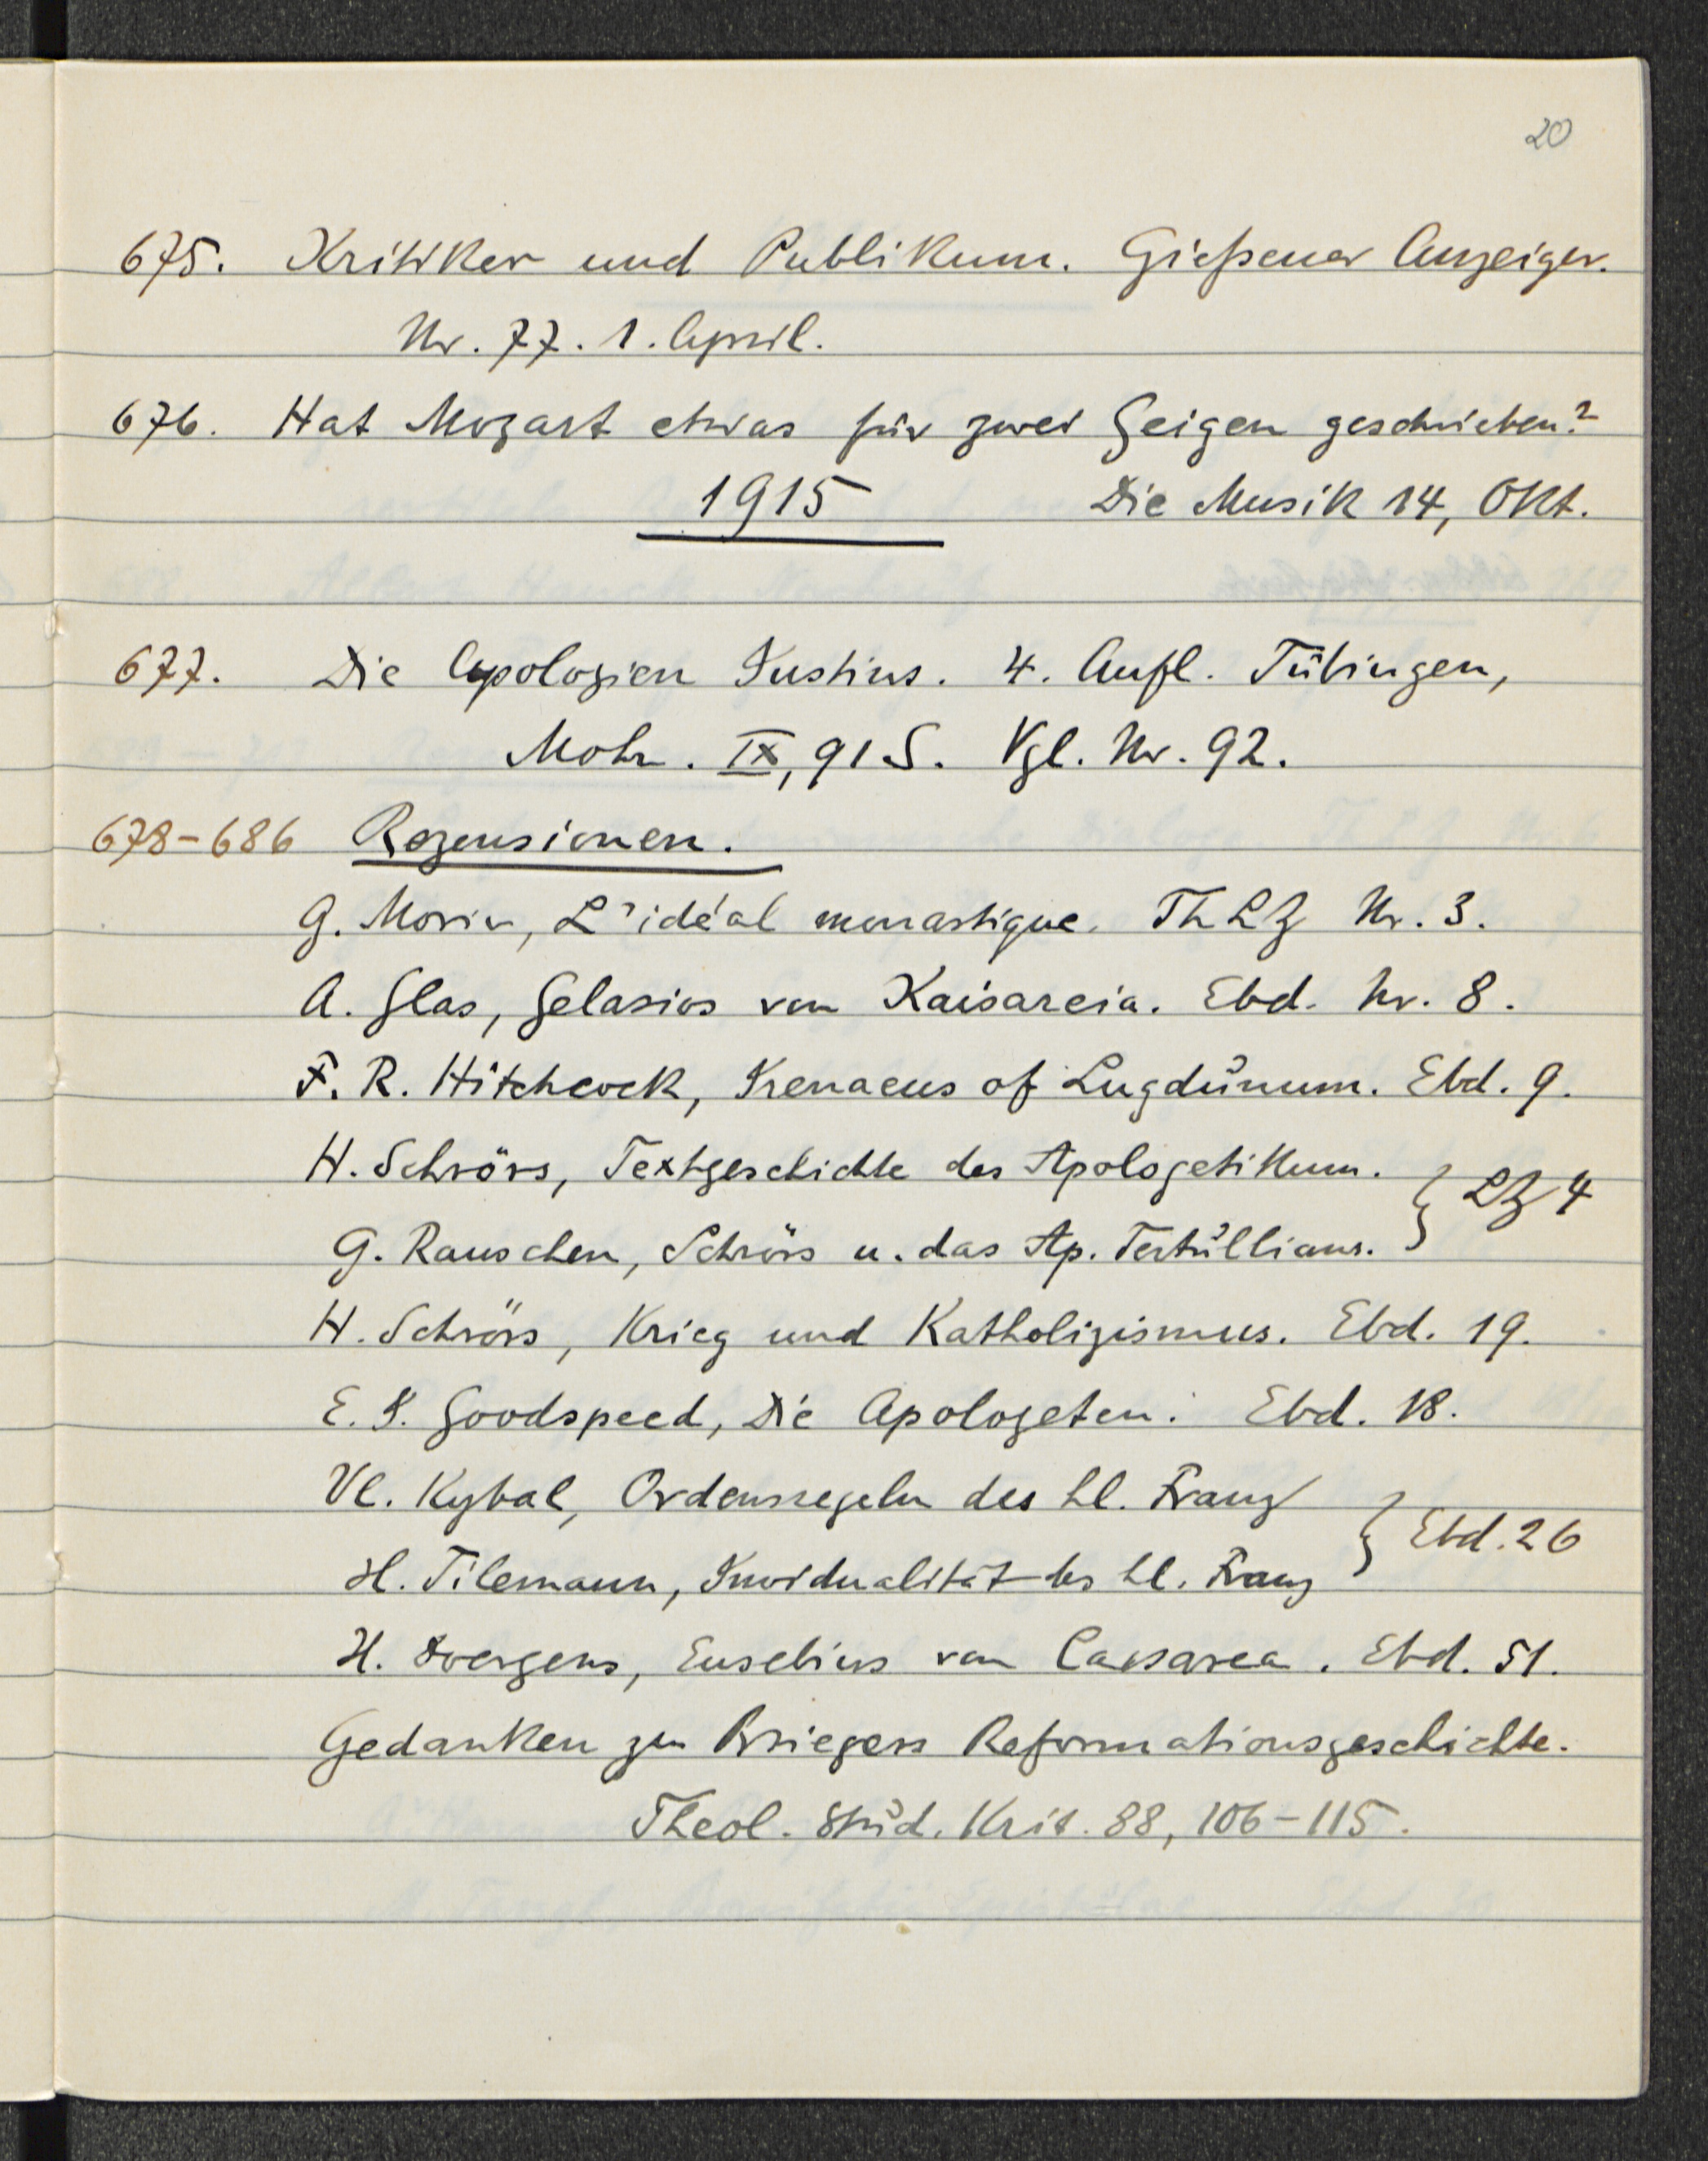 20
675. Kritiker und Publikum. Gießener Anzeiger.
Nr. 77. 1. April.
676. Hat Mozart etwas für zwei Geigen geschrieben?
1915 Die Musik 14, Okt.
677. Die Apologien Justins. 4. Aufl. Tübingen,
Mohr. IX, 91 S. Vgl. Nr. 92.
678-686 Rezensionen.
G. Morin, L'idéal monastique. ThLZ Nr. 3.
A. Glas, Gelasios von Kaisareia. Ebd. Nr. 8.
F. R. Hitchcock, Irenaeus of Lugdunum. Ebd. 9.
H. Schrörs, Textgeschichte des Apologetikum.
} LZ 4
G. Rauschen, Schrörs u. das Ap. Tertullians.
H. Schrörs, Krieg und Katholizismus. Ebd. 19.
E. J. Goodspeed, Die Apologeten. Ebd. 18.
Vl. Kybal, Ordensregeln des hl. Franz
} Ebd. 26
H. Tilemann, Invidualität des hl. Franz
H. Doergens, Eusebius von Caesarea. Ebd. 51.
Gedanken zu Briegers Reformationsgeschichte.
Theol. Stud. Krit. 88, 106-115.